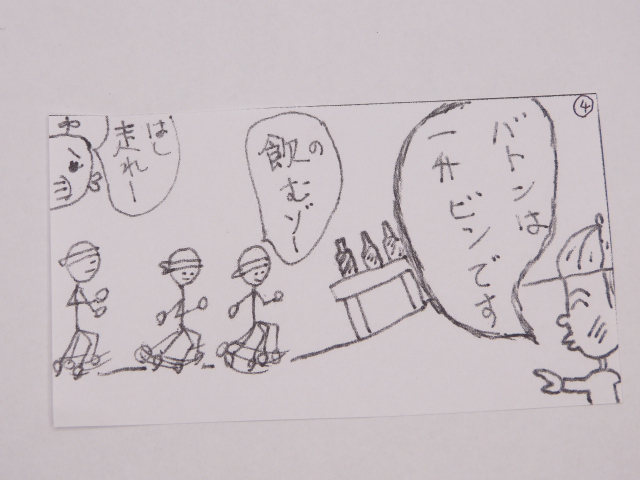 ④
バトンは
一升ビンです
飲のむゾー
はし走れー